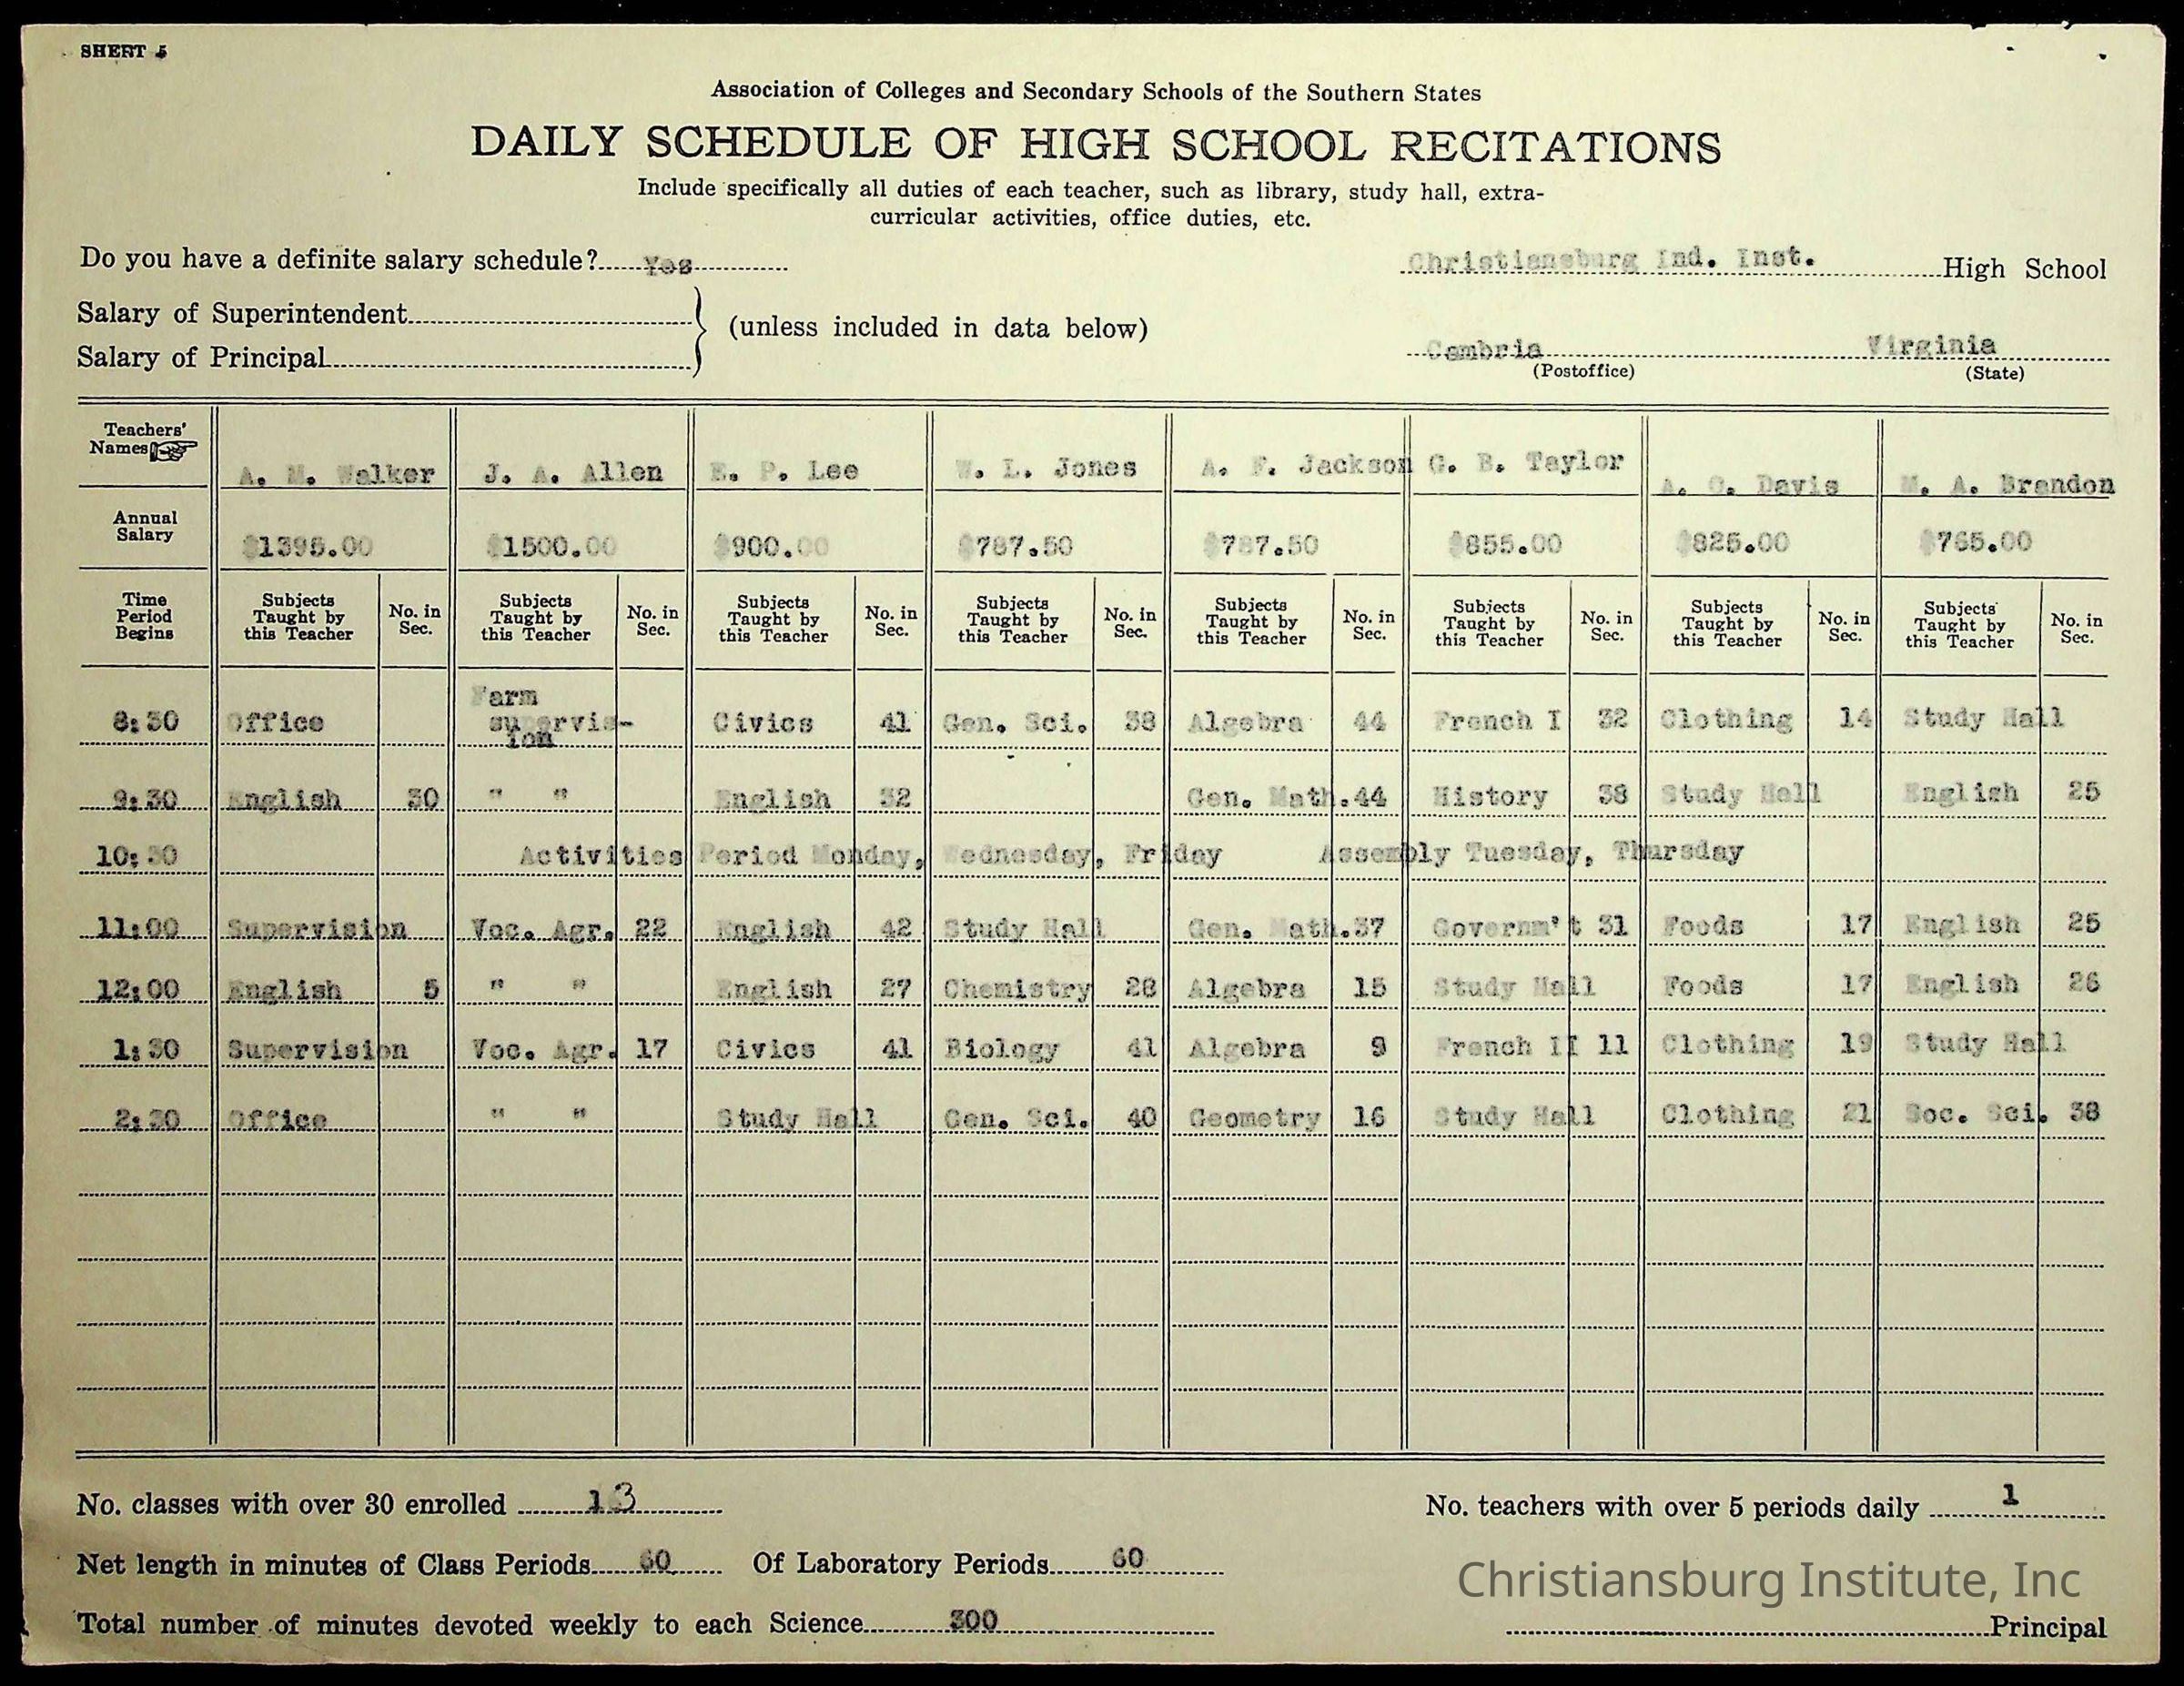 SHEET 5
Association of Colleges and Secondary Schools of the Southern States
DAILY SCHEDULE OF HIGH SCHOOL RECITATIONS
Include specifically all duties of each teacher, such as library, study hall, extra-
curricular activities, office duties, etc.
Do you have a definite salary schedule? Yes
Christiansburg Ind. Inst. High School
Salary of Superintendent
Salary of Principal
(unless included in data below)
Cambria Virginia
(Postoffice) (State)
Teachers' Names A. M. Walker J. A. Allen E. P. Lee W. L. Jones A. F. Jackson G. B. Taylor A. C. Davis M. A. Brandon
Annual Salary $1395.00 $1500.00 $900.00 $787.50 $787.50 $855.00 $825.00 $765.00
Time Period Begins Subjects Taught by this Teacher No. in Sec. Subjects Taught by this Teacher No. in Sec. Subjects Taught by this Teacher No. in Sec. Subjects Taught by this Teacher No. in Sec. Subjects Taught by this Teacher No. in Sec. Subjects Taught by this Teacher No. in Sec. Subjects Taught by this Teacher No. in Sec. Subjects Taught by this Teacher No. in Sec.
8:30 Office Farm supervis-ion Civics 41 Gen. Sci. 38 Algebra 44 French I 32 Clothing 14 Study Hall
9:30 English 30 " " English 32 Gen. Math. 44 History 38 Study Hall English 25
10:30 Activities Period Monday, Wednesday, Friday Assembly Tuesday, Thursday
11:00 Supervision Voc. Agr. 22 English 42 Study Hall Gen. Math. 37 Governm't 31 Foods 17 English 25
12:00 English 5 " " English 27 Chemistry 28 Algebra 15 Study Hall Foods 17 English 26
1:30 Supervision Voc. Agr. 17 Civics 41 Biology 41 Algebra 9 French II 11 Clothing 19 Study Hall
2:30 Office " " Study Hall Gen. Sci. 40 Geometry 16 Study Hall Clothing 21 Soc. Sci. 38
No. classes with over 30 enrolled 13
No. teachers with over 5 periods daily 1
Net length in minutes of Class Periods 60 Of Laboratory Periods 60
Christiansburg Institute, Inc
Total number of minutes devoted weekly to each Science 300
Principal